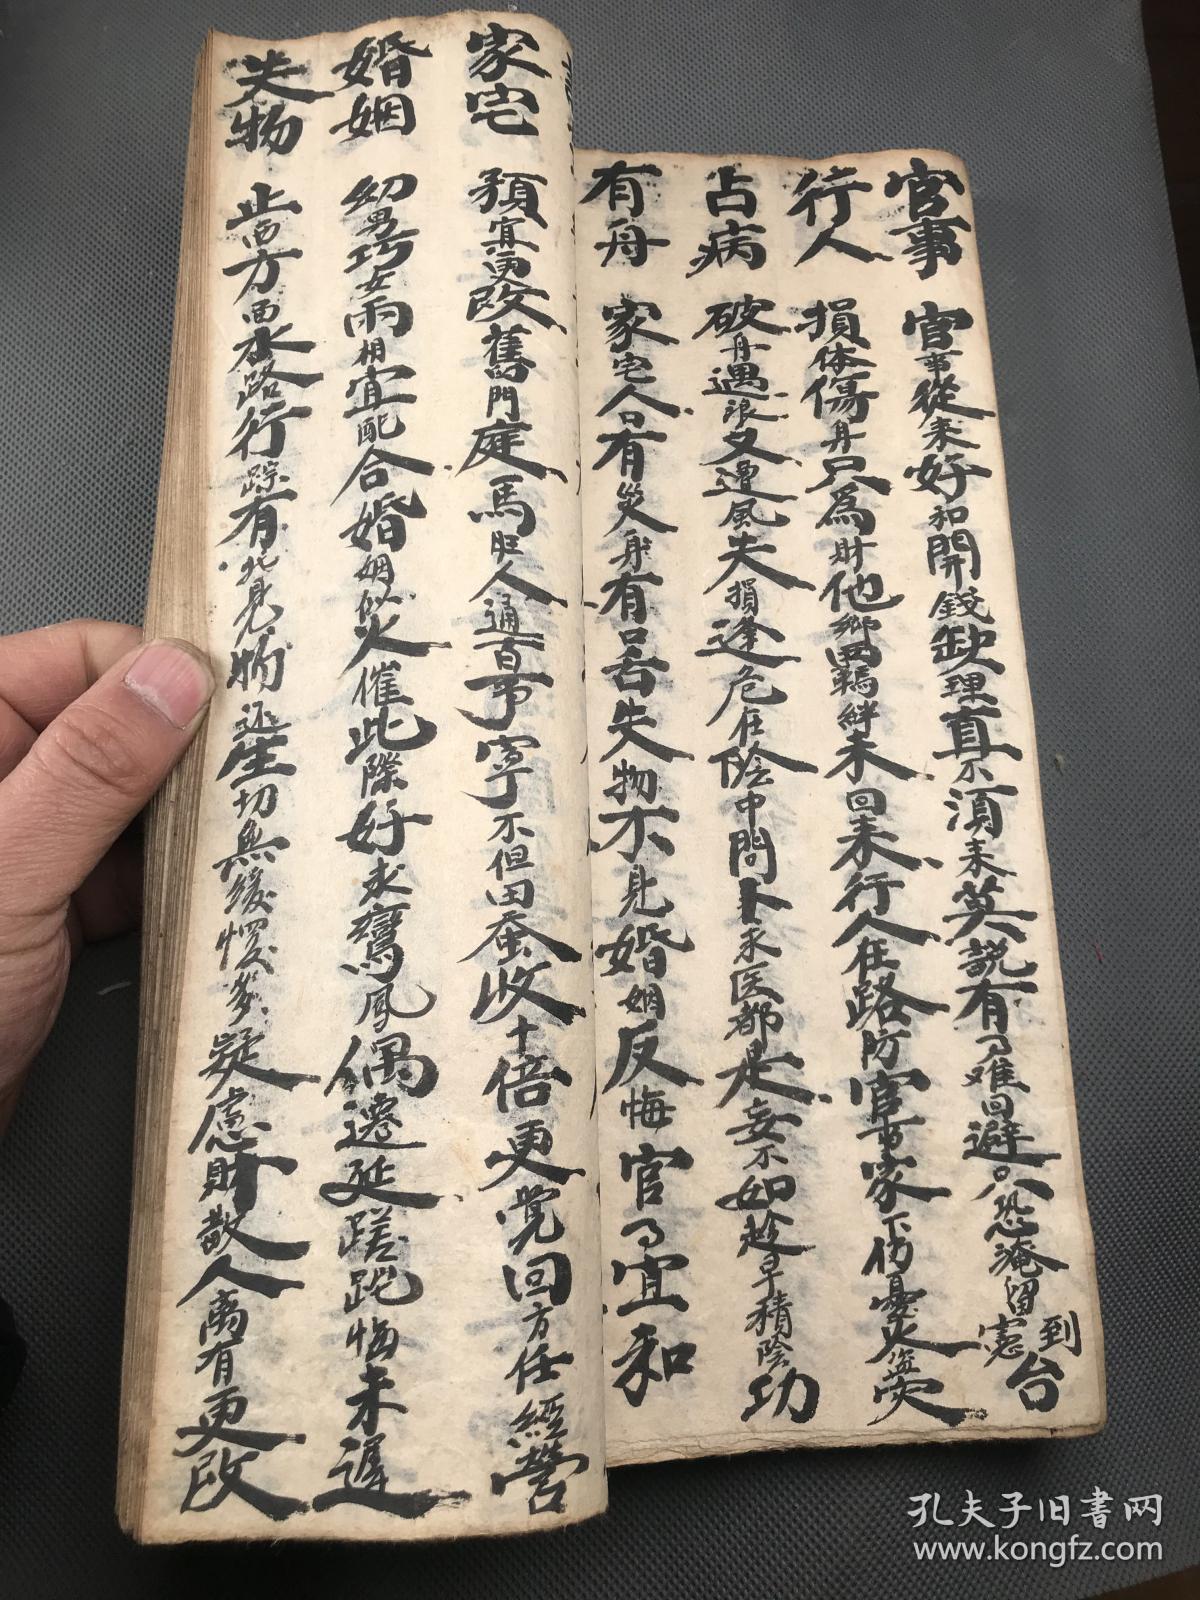 官事 官事從来好和開錢缺理真不須来莫説有了难回避只恐淹留到憲台
行人 損体傷身只為財他鄉羈絆未回来行人在路防官事家下伤憂火盜灾
占病 破舟遇浪又遭風失損逢危在陰中問卜求医都是妄不如趁早積陰功
有舟 家宅人口有災身有吕失物不見婚姻反悔官了宜和
家宅 預宜更改舊門庭馬旺人通百事寧不但田蚕收十倍更党回方任經營
婚姻 幼男巧女兩相宜配合婚姻似火催此際好求鸞鳳偶遷延蹉跎悔来遲
失物 止西方西水路行踪有北見物还生切無緩慢多疑慮財散人离有更改
孔夫子旧书网
www.kongfz.com